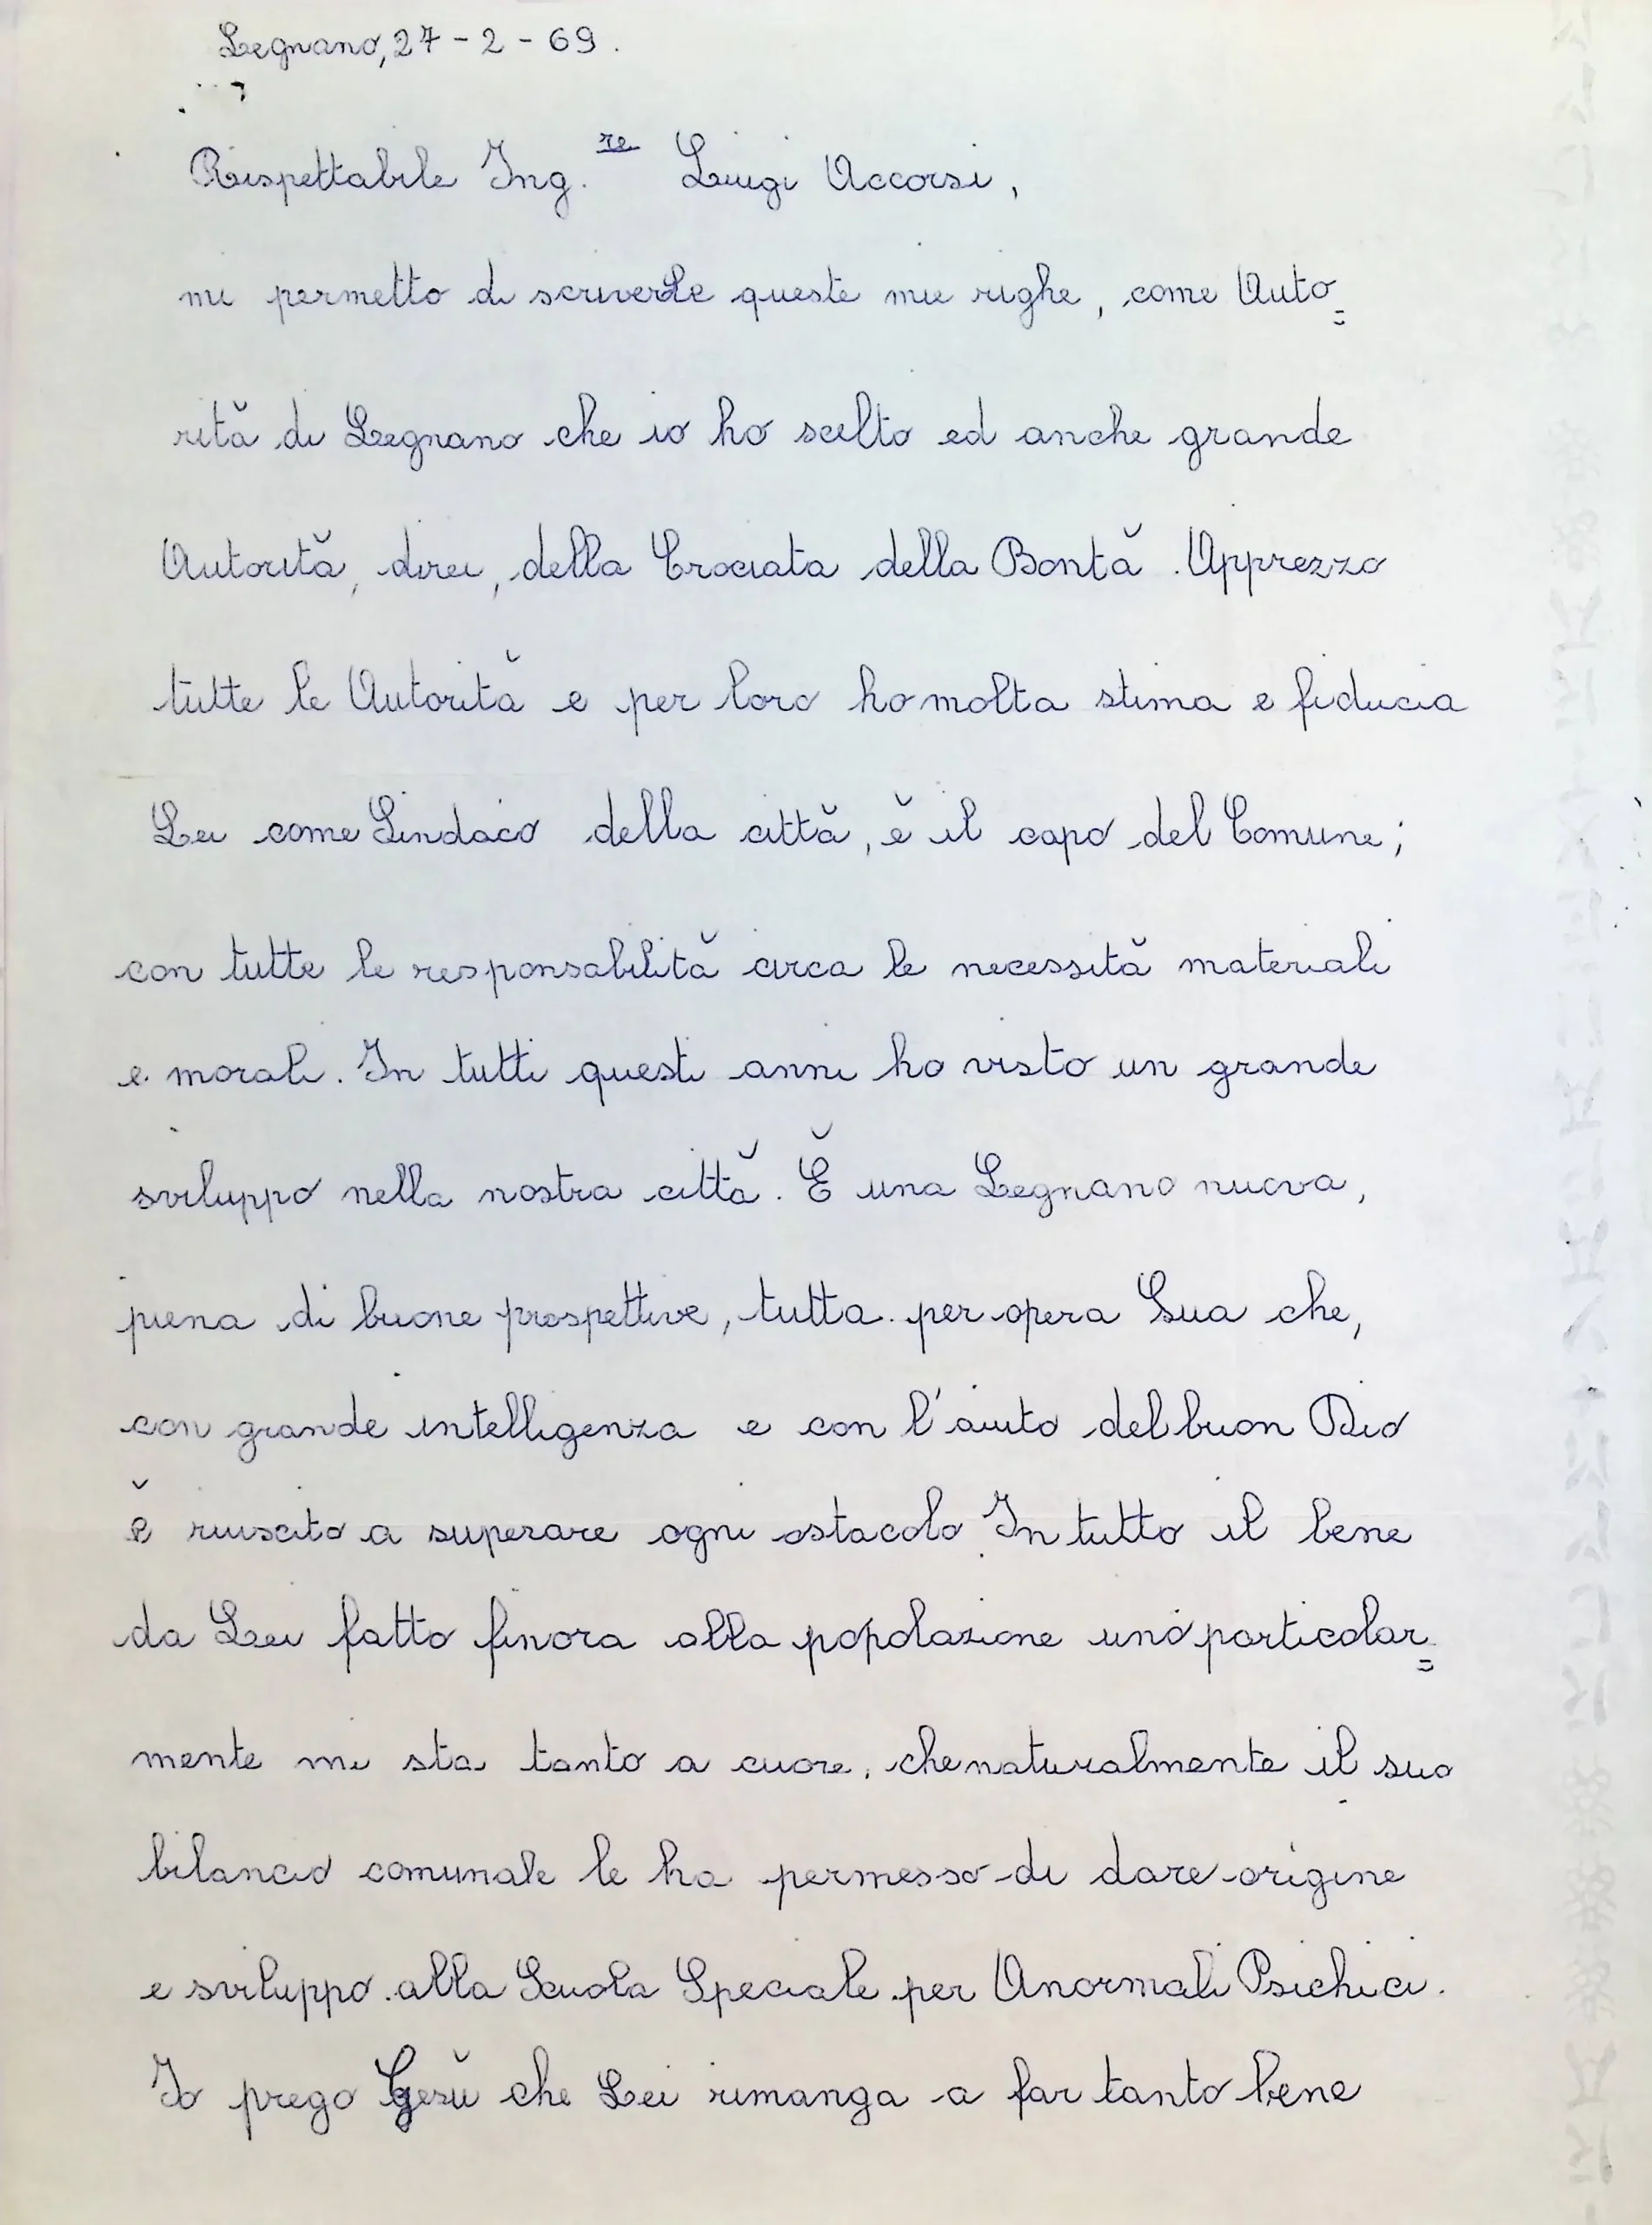 Legnano, 27-2-69.
Rispettabile Ing.re Luigi Accorsi,
mi permetto di scriverLe queste mie righe, come Auto=
rită di Legnano che io ho scelto ed anche grande
Autorită, direi, della Crociata della Bontă. Apprezzo
tutte le Autorită e per loro ho molta stima e fiducia
Lei come Sindaco della cittă, ĕ il capo del Comune;
con tutte le responsabilită circa le necessită materiali
e morali. In tutti questi anni ho visto un grande
sviluppo nella nostra cittă. Ĕ una Legnano nuova,
piena di buone prospettive, tutta per opera Sua che,
con grande intelligenza e con l'aiuto del buon Dio
ĕ riuscito a superare ogni ostacolo. In tutto il bene
da Lei fatto finora alla popolazione uno particolar=
mente mi sta tanto a cuore, che naturalmente il suo
bilancio comunale le ha permesso di dare origine
e sviluppo alla Scuola Speciale per Anormali Psichici.
Io prego Gesŭ che Lei rimanga a far tanto bene